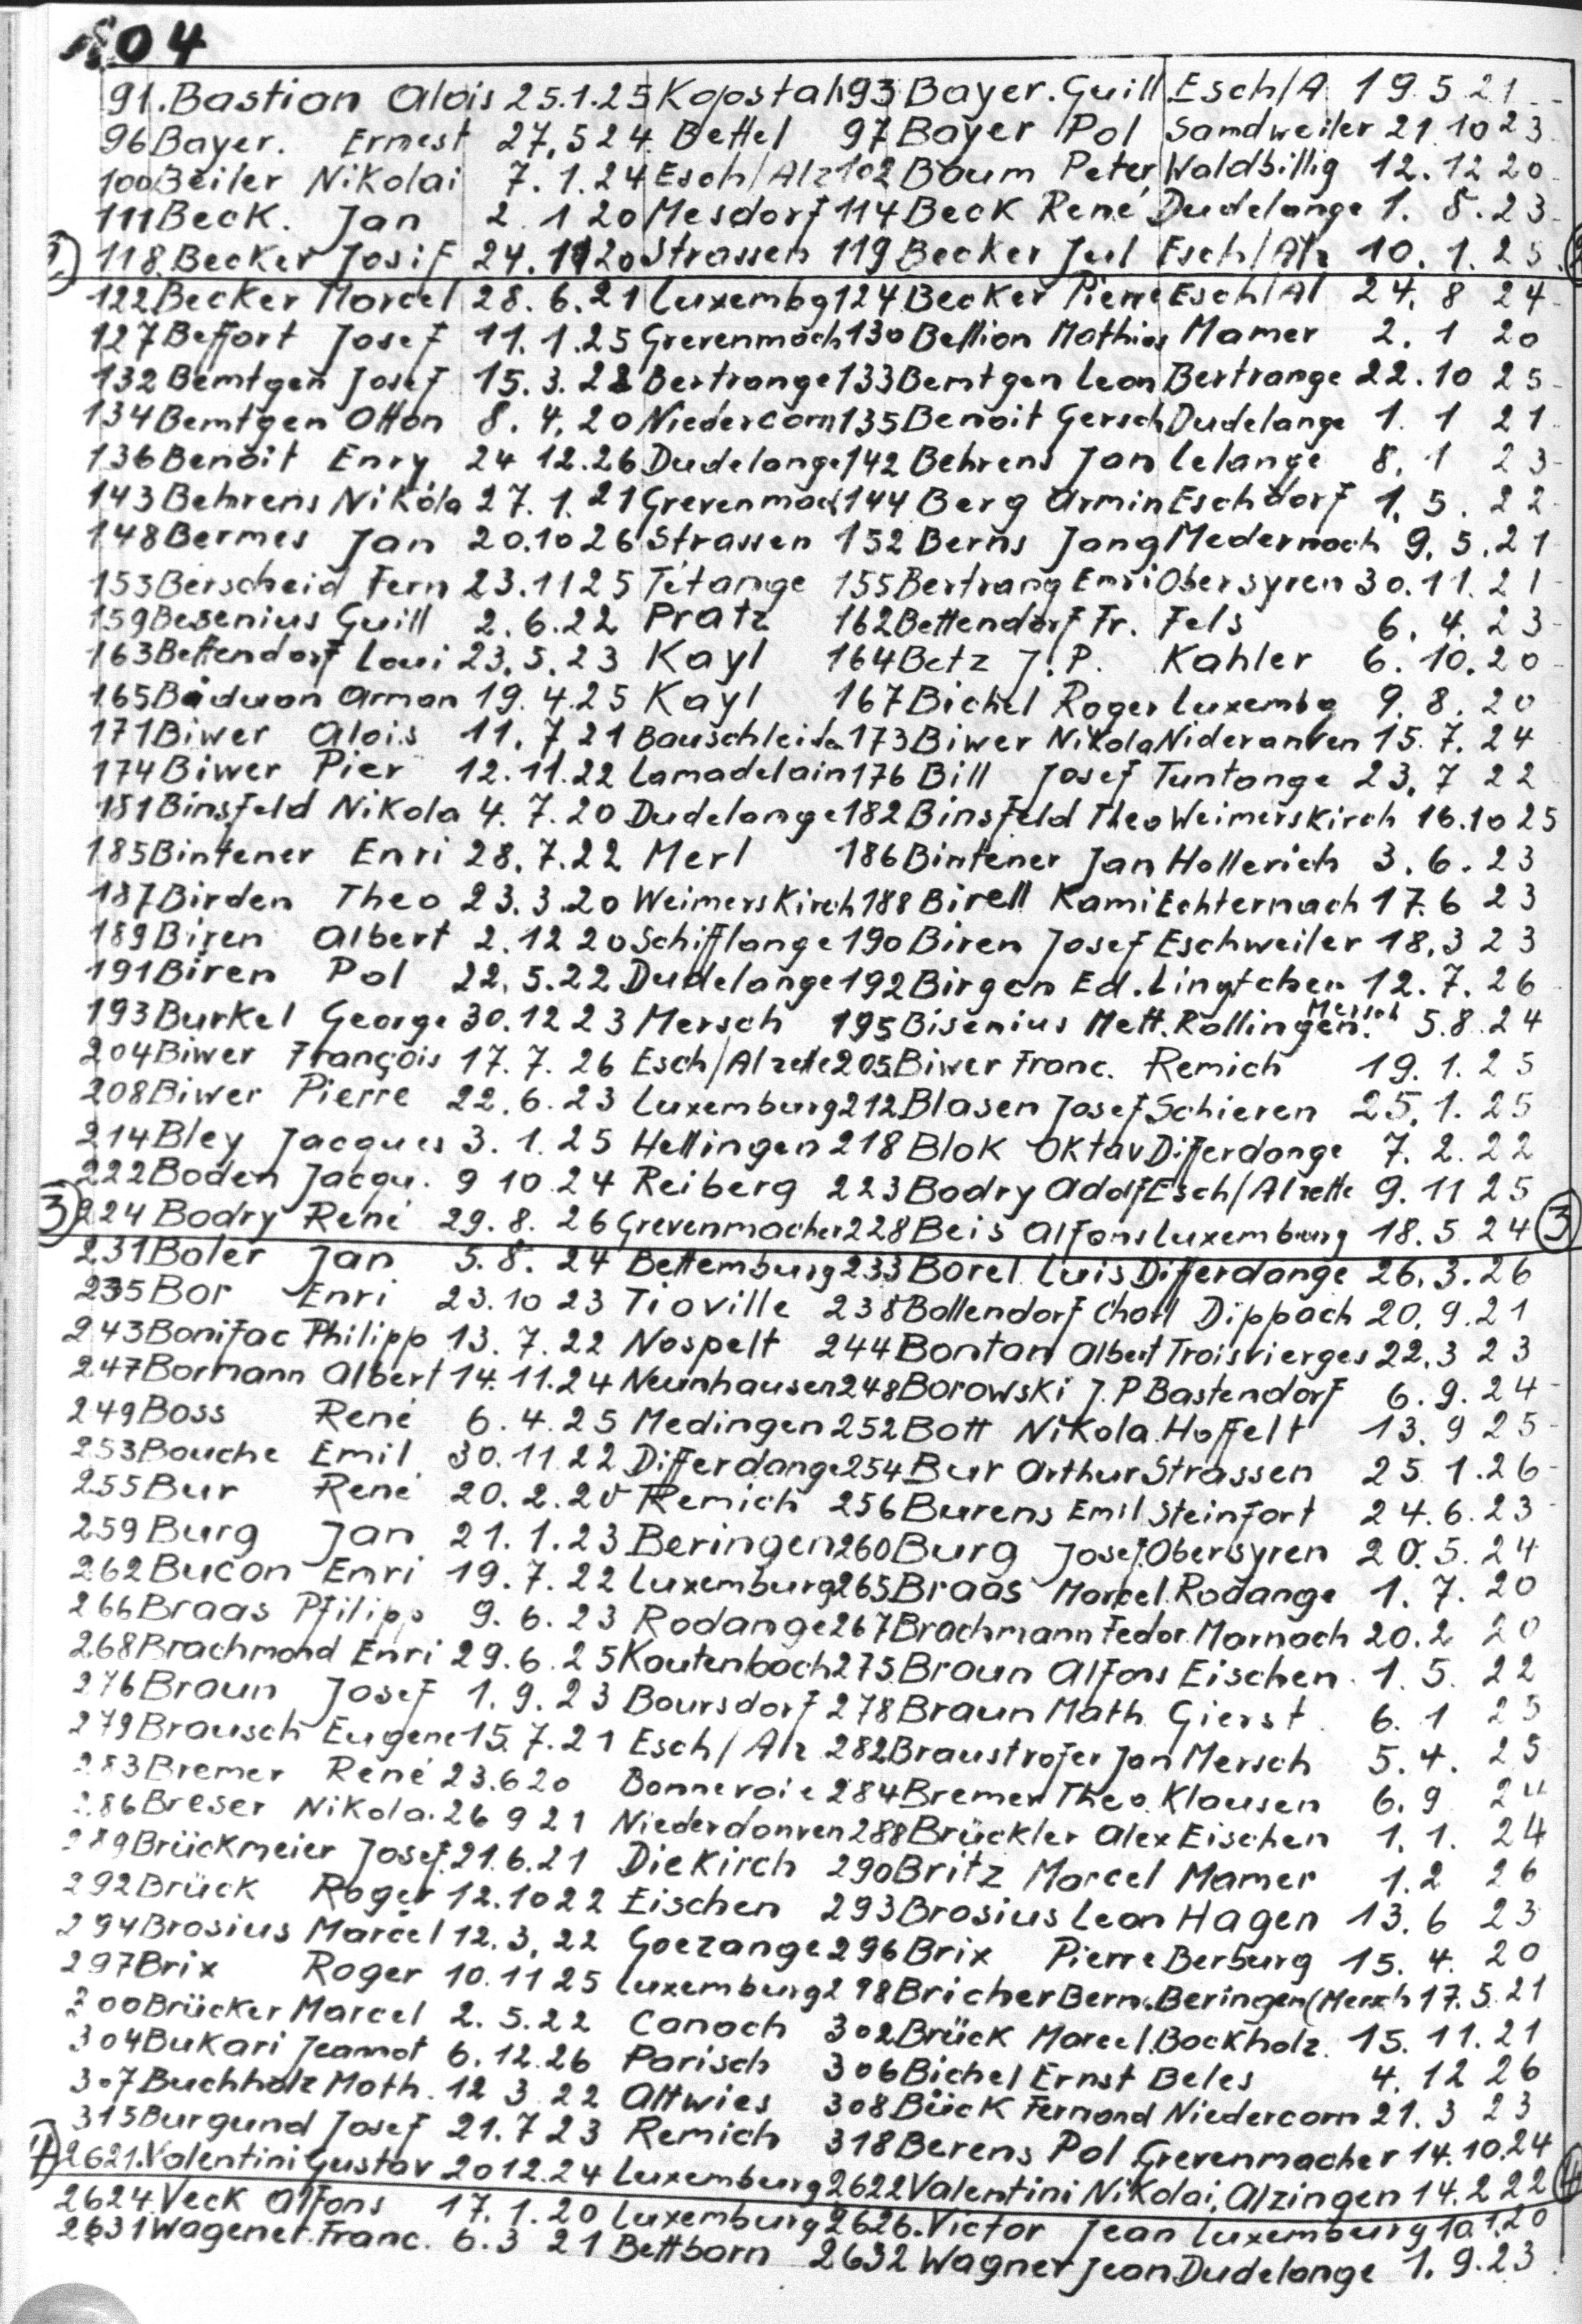 104
91. Bastian Alois 25.1.25 Kopstal 93 Bayer. Guill Esch/A 19 5 21
96 Bayer. Ernest 27.5 24 Bettel 97 Bayer Pol Sandweiler 21 10 23
100 Beiler Nikolai 7.1.24 Esch/Alz 102 Baum Peter Waldbillig 12.12 20
111 Beck. Jan 2 1 20 Mesdorf 114 Beck René Dudelange 1. 8.23
2) 118 Becker Josif 24.11 20 Strassen 119 Becker Jul Esch/Alz 10. 1. 25
122 Becker Marcel 28.6.21 Luxembg 124 Becker Pierre Esch/Al 24. 8 24
127 Beffort Josef 11.1.25 Grevenmach 130 Bellion Mathias Mamer 2. 1 20
132 Bemtgen Josef 15.3.28 Bertrange 133 Bemtgen Leon Bertrange 22.10 25
134 Bemtgen Otton 8.4.20 Niedercorn 135 Benoit Gersch Dudelange 1. 1 21
136 Benoit Enry 24 12.26 Dudelange 142 Behrens Jan Lelange 8. 1 23
143 Behrens Nikola 27.1.21 Grevenmach 144 Berg Armin Eschdorf 1. 5. 22
148 Bermes Jan 20.10 26 Strassen 152 Berns Jang Medernach 9.5.21
153 Berscheid Fern 23.11 25 Tétange 155 Bertrang Enri Obersyren 30.11.21
159 Besenius Guill 2.6.22 Pratz 162 Bettendorf Fr. Fels 6. 4. 23
163 Bettendorf Loui 23.5.23 Kayl 164 Betz J.P. Kahler 6. 10. 20
165 Biduon Arman 19.4.25 Kayl 167 Bichel Roger Luxembg 9. 8. 20
171 Biwer Alois 11.7.21 Bauschleiden 173 Biwer Nikola Nideranven 15.7.24
174 Biwer Pier 12.11.22 Lamadelain 176 Bill Josef Tuntange 23.7 22
181 Binsfeld Nikola 4.7.20 Dudelange 182 Binsfeld Theo Weimerskirch 16.10 25
185 Bintener Enri 28.7.22 Merl 186 Bintener Jan Hollerich 3.6.23
187 Birden Theo 23.3.20 Weimerskirch 188 Birell Kami Echternach 17.6 23
189 Biren Albert 2.12 20 Schifflange 190 Biren Josef Eschweiler 18.3 23
191 Biren Pol 22.5.22 Dudelange 192 Birgen Ed. Lingtchen 12.7.26
193 Burkel George 30.12 23 Mersch 195 Bisenius Mett. Rollingen. Mersch 5.8.24
204 Biwer François 17.7.26 Esch/Alzette 205 Biwer Franc. Remich 19.1.25
208 Biwer Pierre 22.6.23 Luxemburg 212 Blasen Josef Schieren 25.1.25
214 Bley Jacques 3.1.25 Hellingen 218 Blok Oktav Differdange 7.2.22
222 Boden Jacqu. 9 10.24 Reiberg 223 Bodry Adolf Esch/Alzette 9.11 25
3) 224 Bodry René 29.8.26 Grevenmacher 228 Beis Alfons Luxemburg 18.5 24 3
231 Boler Jan 5.8.24 Bettemburg 233 Borel Luis Differdange 26.3.26
235 Bor Enri 23.10 23 Tioville 238 Bollendorf Charl Dippach 20.9.21
243 Bonifac Philipp 13.7.22 Nospelt 244 Bontan Albert Troisvierges 22.3 23
247 Bormann Albert 14.11.24 Neunhausen 248 Borowski J.P Bastendorf 6.9.24
249 Boss René 6.4.25 Medingen 252 Bott Nikola Hoffelt 13.9 25
253 Bouche Emil 30.11.22 Differdange 254 Bur Arthur Strassen 25 1.26
255 Bur René 20.2.20 Remich 256 Burens Emil Steinfort 24.6.23
259 Burg Jan 21.1.23 Beringen 260 Burg Josef Obersyren 20.5.24
262 Bucon Enri 19.7.22 Luxemburg 265 Braas Marcel Rodange 1.7.20
266 Braas Pfilipp 9.6.23 Rodange 267 Brachmann Fedor Marnach 20.2 20
268 Brachmond Enri 29.6.25 Koutenbach 275 Braun Alfons Eischen 1.5.22
276 Braun Josef 1.9.23 Boursdorf 278 Braun Math Gierst 6.1 25
279 Brausch Eugene 15.7.21 Esch/Alz 282 Braustrofer Jan Mersch 5.4.25
283 Bremer René 23.6 20 Bonnevoie 284 Bremer Theo. Klausen 6.9 24
286 Breser Nikola. 26 9 21 Niederdonven 288 Brückler Alex Eischen 1.1.24
289 Brückmeier Josef 21.6.21 Diekirch 290 Britz Marcel Mamer 1.2 26
292 Brück Roger 12.10 22 Eischen 293 Brosius Leon Hagen 13.6 23
294 Brosius Marcel 12.3.22 Goezange 296 Brix Pierre Berburg 15.4.20
297 Brix Roger 10.11 25 Luxemburg 298 Bricher Bern. Beringen (Mersch 17.5.21
300 Brücker Marcel 2.5.22 Canach 302 Brück Marcel Bockholz 15.11.21
304 Bukari Jeannot 6.12.26 Parisch 306 Bichel Ernst Beles 4.12 26
307 Buchholz Math. 12 3 22 Altwies 308 Bück Fernand Niedercorn 21.3 23
315 Burgund Josef 21.7 23 Remich 318 Berens Pol Grevenmacher 14.10.24
4) 2621. Valentini Gustav 20 12.24 Luxemburg 2622 Valentini Nikolai, Alzingen 14.2 22 4
2624. Veck Alfons 17.1.20 Luxemburg 2626. Victor Jean Luxemburg 10.1.20
2631 Wagener. Franc. 6.3 21 Bettborn 2632 Wagner Jean Dudelange 1. 9.23